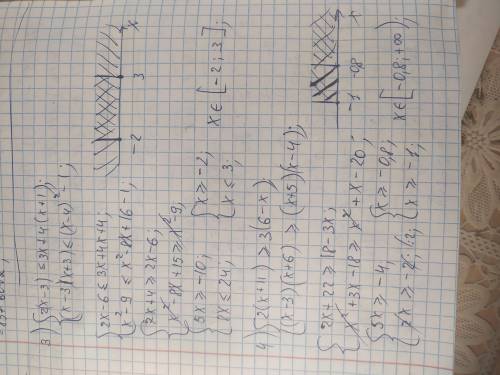 3) { 2(x-3) ≤ 3x+4(x+1);
(x-3)(x+3) ≤ (x-4)² - 1;
{ 2x-6 ≤ 3x+4x+4;
x²-9 ≤ x²-8x+16-1;
{ 7x+4 ≥ 2x-6;
x²-8x+15 ≥ x²-9;
{ 5x ≥ -10; { x ≥ -2;
8x ≤ 24; x ≤ 3;
-2 3 x
x∈[-2; 3];
4) { 2(x+11) ≥ 3(6-x);
(x-3)(x+6) ≥ (x+5)(x-4);
{ 2x+22 ≥ 18-3x;
x²+3x-18 ≥ x²+x-20;
{ 5x ≥ -4; { x ≥ -0,8;
2x ≥ -2; |:2 x ≥ -1;
-1 -0,8 x
x∈[-0,8; +∞);